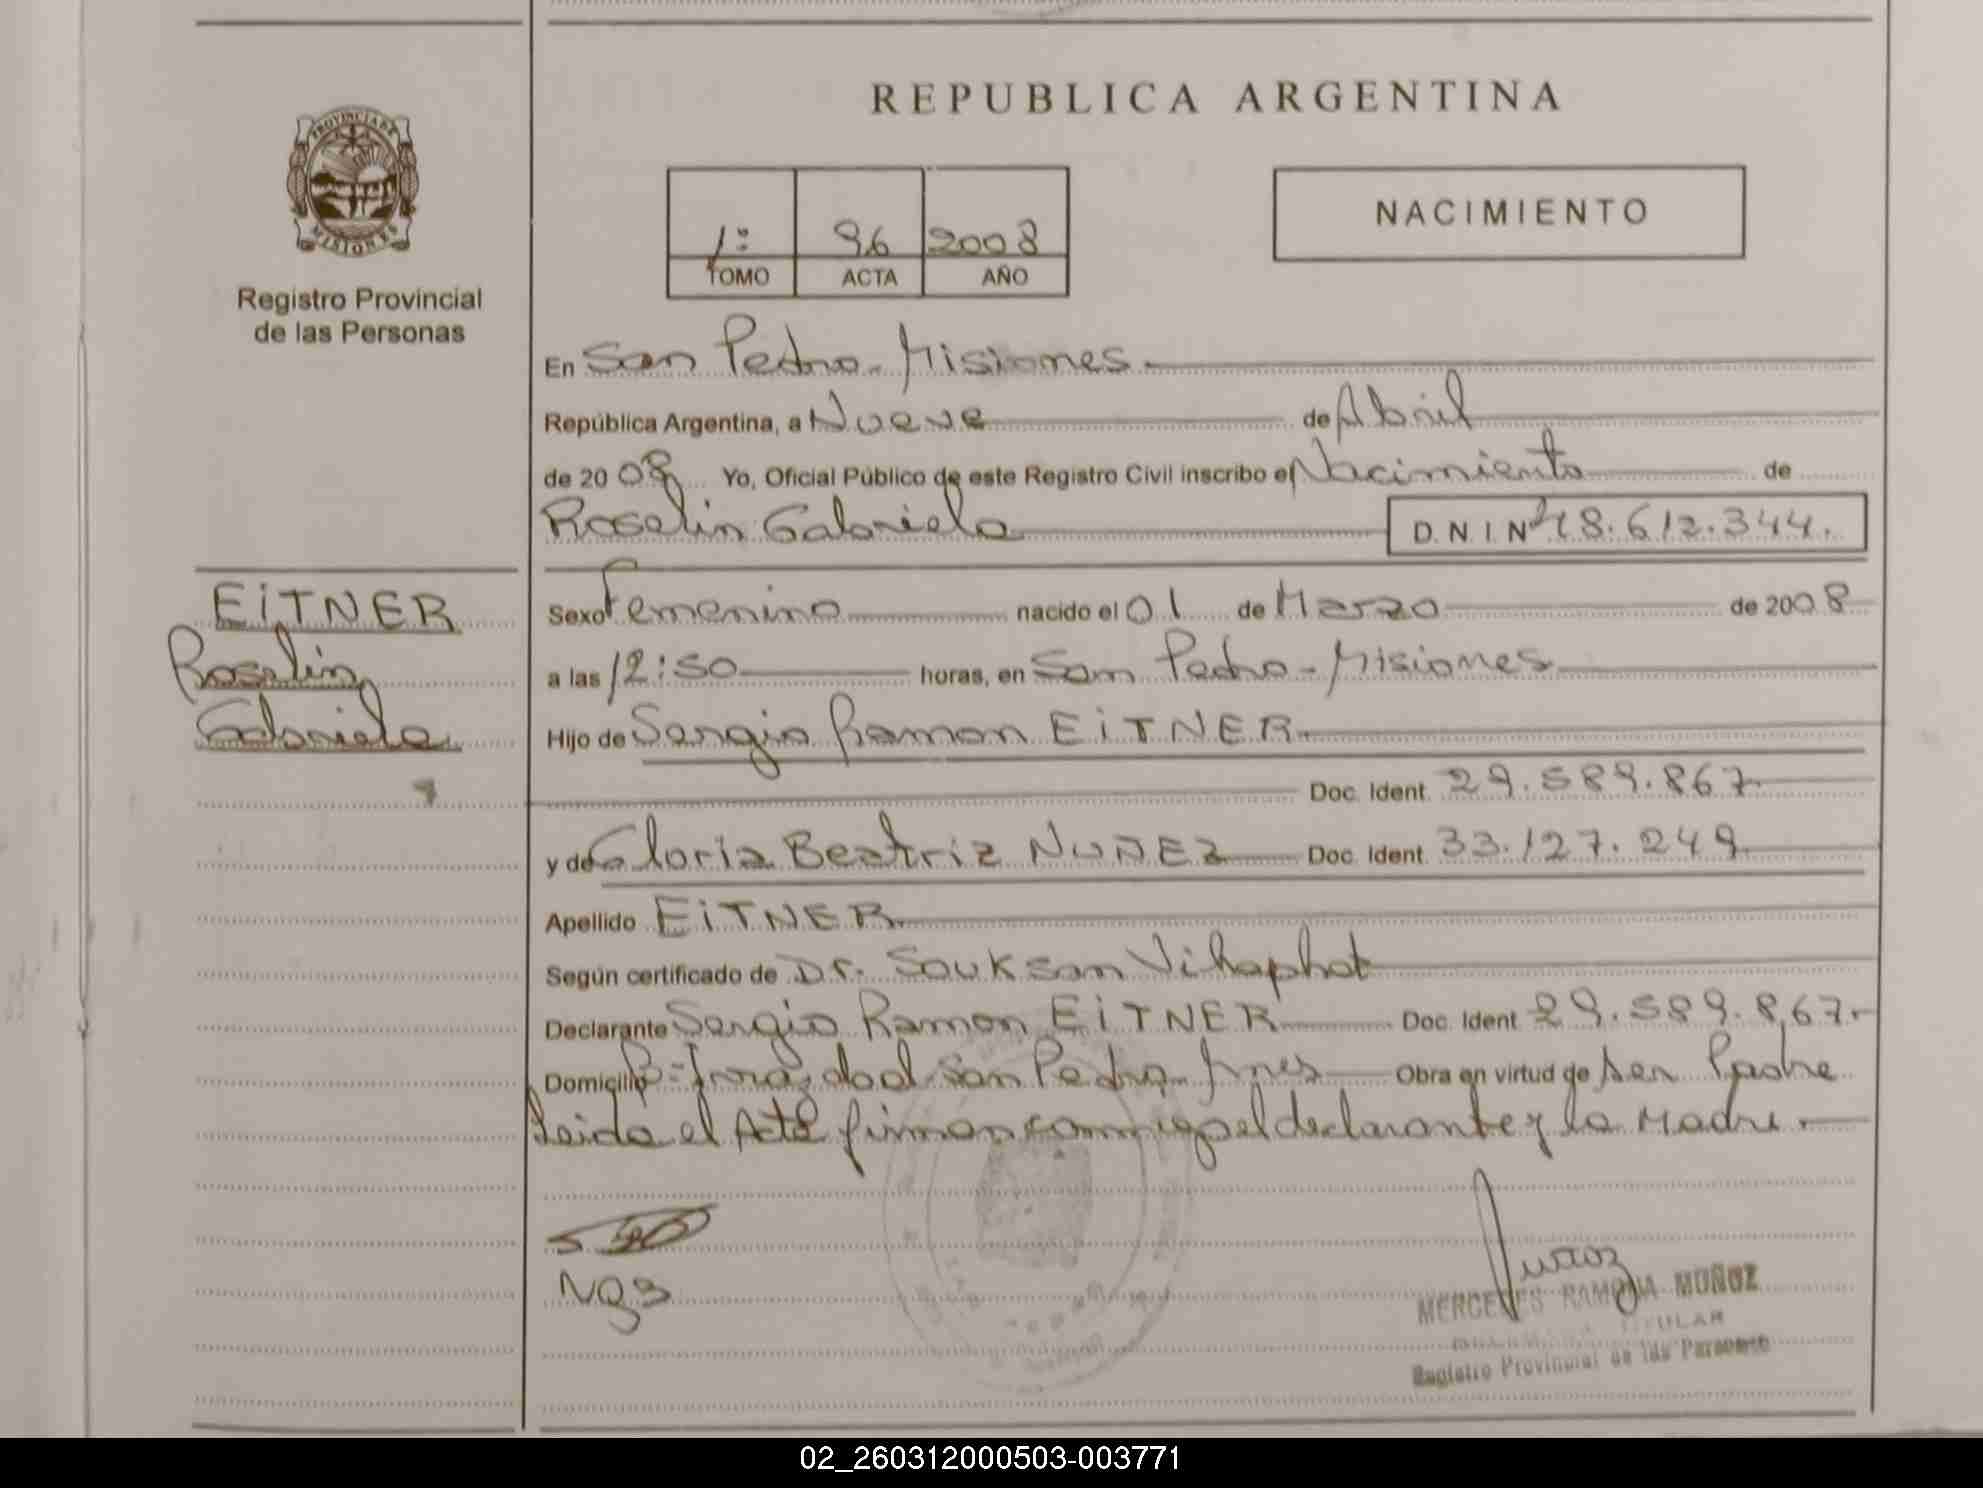 REPUBLICA ARGENTINA
PROVINCIA DE
MISIONES
Registro Provincial
de las Personas
1º 96 2008
TOMO ACTA AÑO
NACIMIENTO
En San Pedro - Misiones
República Argentina, a Nueve de Abril
de 2008 Yo, Oficial Público de este Registro Civil inscribo el Nacimiento de
Roselin Gabriela D.N.I. Nº 48.612.344.
EiTNER
Roselin
Gabriela
Sexo Femenino nacido el 01 de Marzo de 2008
a las 12:50 horas, en San Pedro - Misiones
Hijo de Sergio Ramon EiTNER
Doc. Ident. 29.589.867
y de Gloria Beatriz NUÑEZ Doc. Ident. 33.127.249
Apellido EiTNER
Según certificado de Dr. Souksan Vihaphat
Declarante Sergio Ramon EiTNER Doc. Ident. 29.589.867.
Domicilio San Pedro - Mnes Obra en virtud de ser Padre
Leida el Acta firman conmigo el declarante y la Madre.
MERCEDES RAMONA MUÑOZ
TITULAR
Registro Provincial de las Personas
02_260312000503-003771